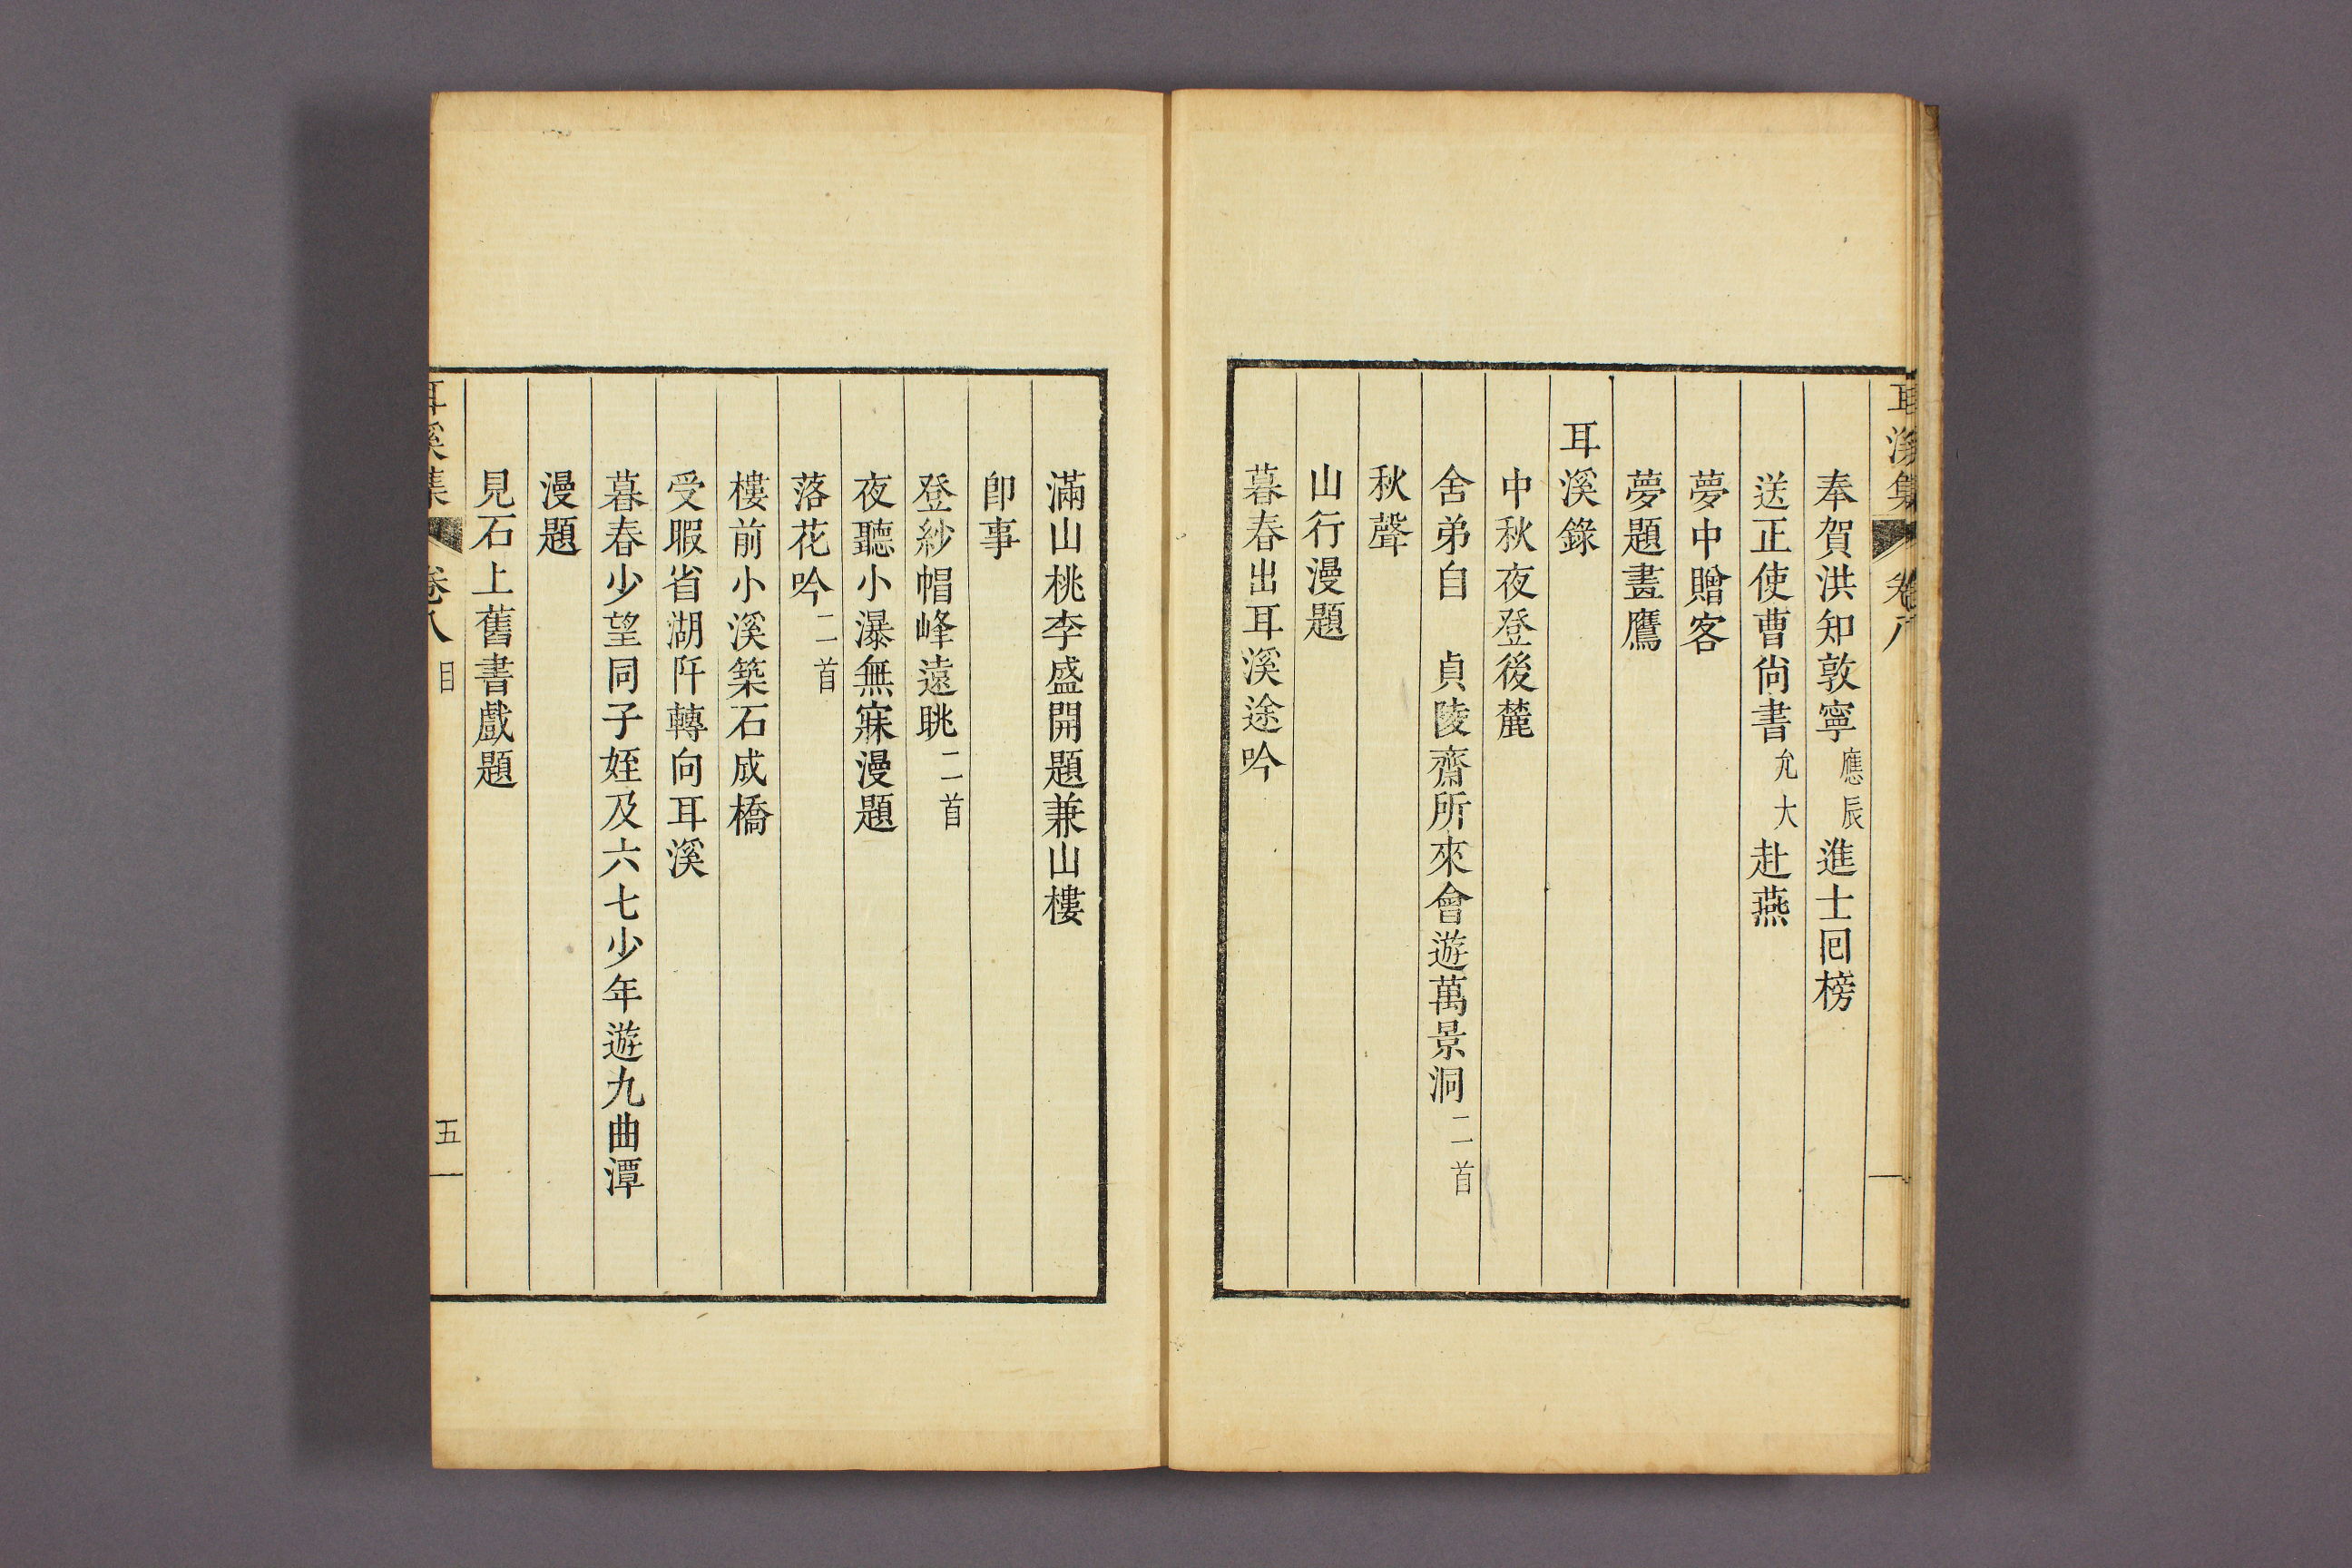 耳溪集 卷八
奉賀洪知敦寧應辰進士囘榜
送正使曹尙書允大赴燕
夢中贈客
夢題畫鷹
耳溪錄
中秋夜登後麓
舍弟自　貞陵齋所來會遊萬景洞二首
秋聲
山行漫題
暮春出耳溪途吟
滿山桃李盛開題兼山樓
卽事
登紗帽峰遠眺二首
夜聽小瀑無寐漫題
落花吟二首
樓前小溪築石成橋
受暇省湖阡轉向耳溪
暮春少望同子姪及六七少年遊九曲潭
漫題
見石上舊書戲題
耳溪集 卷八 目 五